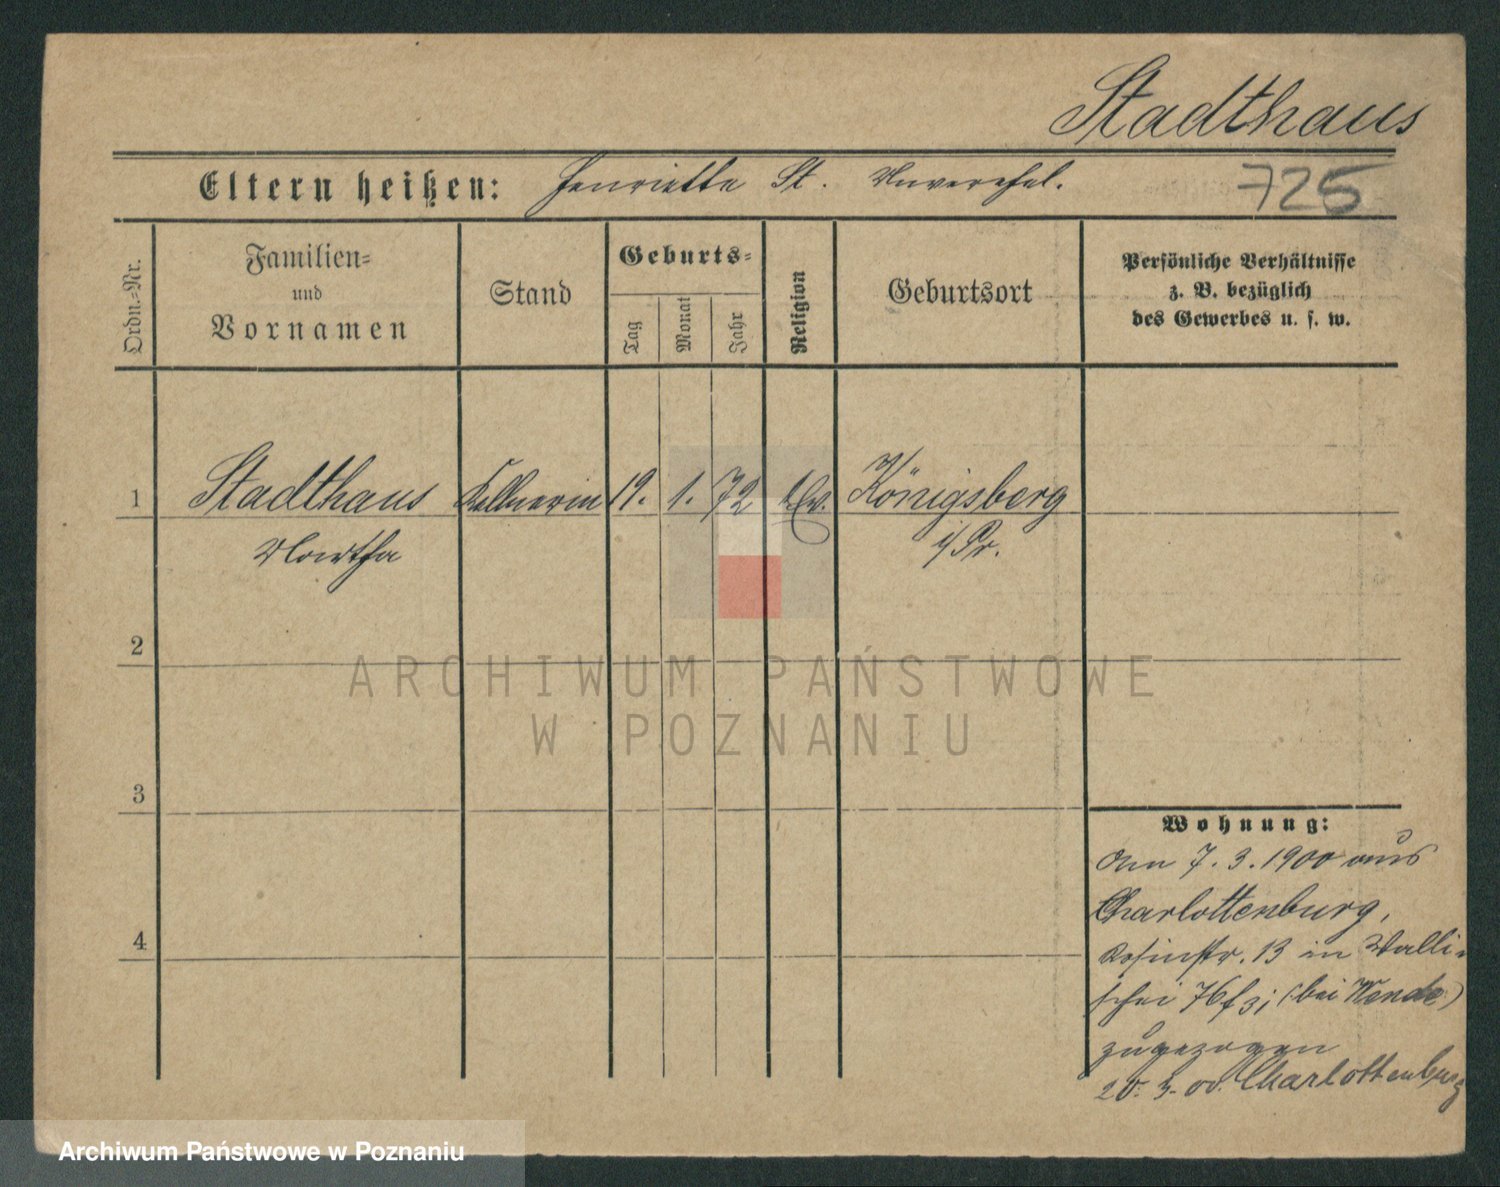 Stadthaus
Eltern heißen: Henriette St. Unverehel.
725
Ordn.-Nr.
Familien-
und
Vornamen
Stand
Geburts-
Tag
Monat
Jahr
Religion
Geburtsort
Persönliche Verhältnisse
z. B. bezüglich
des Gewerbes u. s. w.
1 Stadthaus Kellnerin 19. 1. 72 Ev. Königsberg
Martha i/Pr.
2
3
4
Wohnung:
Am 7.3.1900 aus
Charlottenburg,
Rosinstr. 13 in Walli-
schei 76 bei Wende
zugezogen
20. 3. 00. Charlottenburg
ARCHIWUM PAŃSTWOWE
W POZNANIU
Archiwum Państwowe w Poznaniu